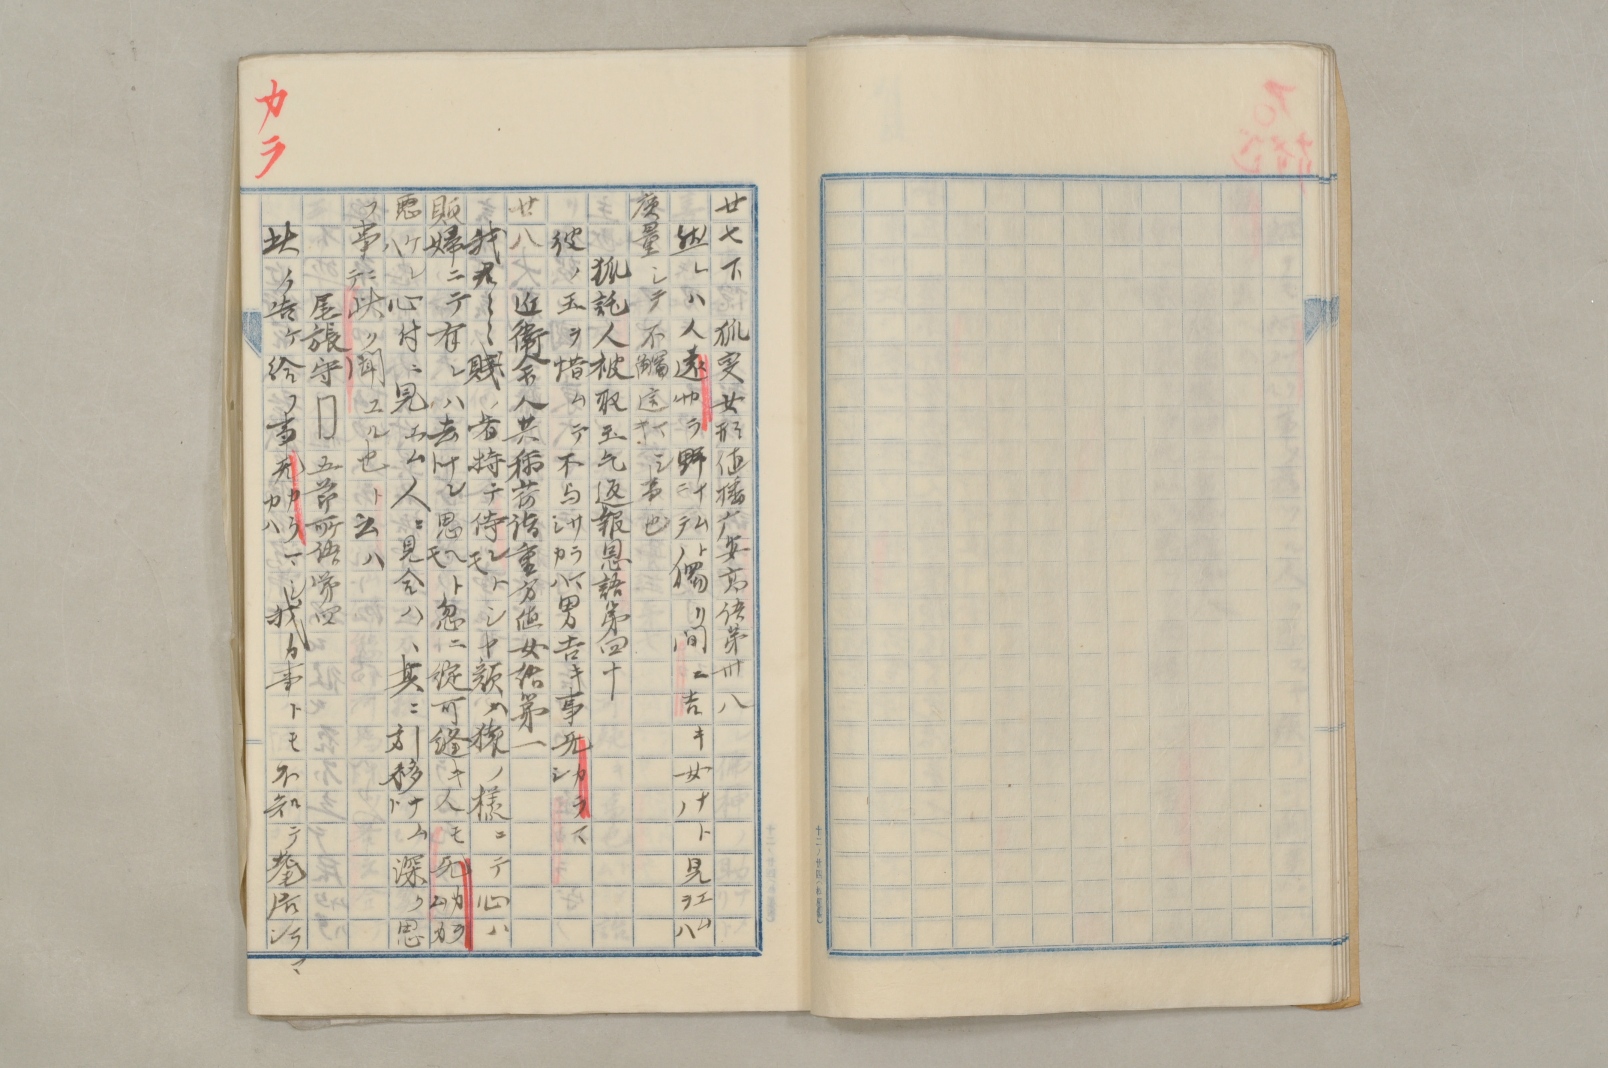 カラ
廿七下 狐変女形値播广安高語第卅八
然レハ人遠ウカラ野ナムトニテ獨リ間ニ吉キ女ナトノ見エムヲハ
廣量シテ不觸這マシキ事也
狐託人被取玉乞返報恩語第四十
彼ノ玉ヲ惜ムテ不与サラマシカハ男吉キ事无カラマシ
廿八 近衛舎人共稲荷詣重方値女語第一
我君々々賤ノ者持テ侍レトモシヤ顔ハ猿ノ様ニテ心ハ
販婦ニテ有レハ去ナムト思ヘトモ忽ニ綻可縫キ人モ无カラムカ
悪ケレハ心付ニ見エム人ニ見合ハヽ其ニ引移ナムト深ク思
フ事ニテ此ク聞ユル也ト云ハ
尾張守□五節所語第四
此ク告ケ給フ事无カラマシカハ我カ事トモ不知テ篭居シラマシ